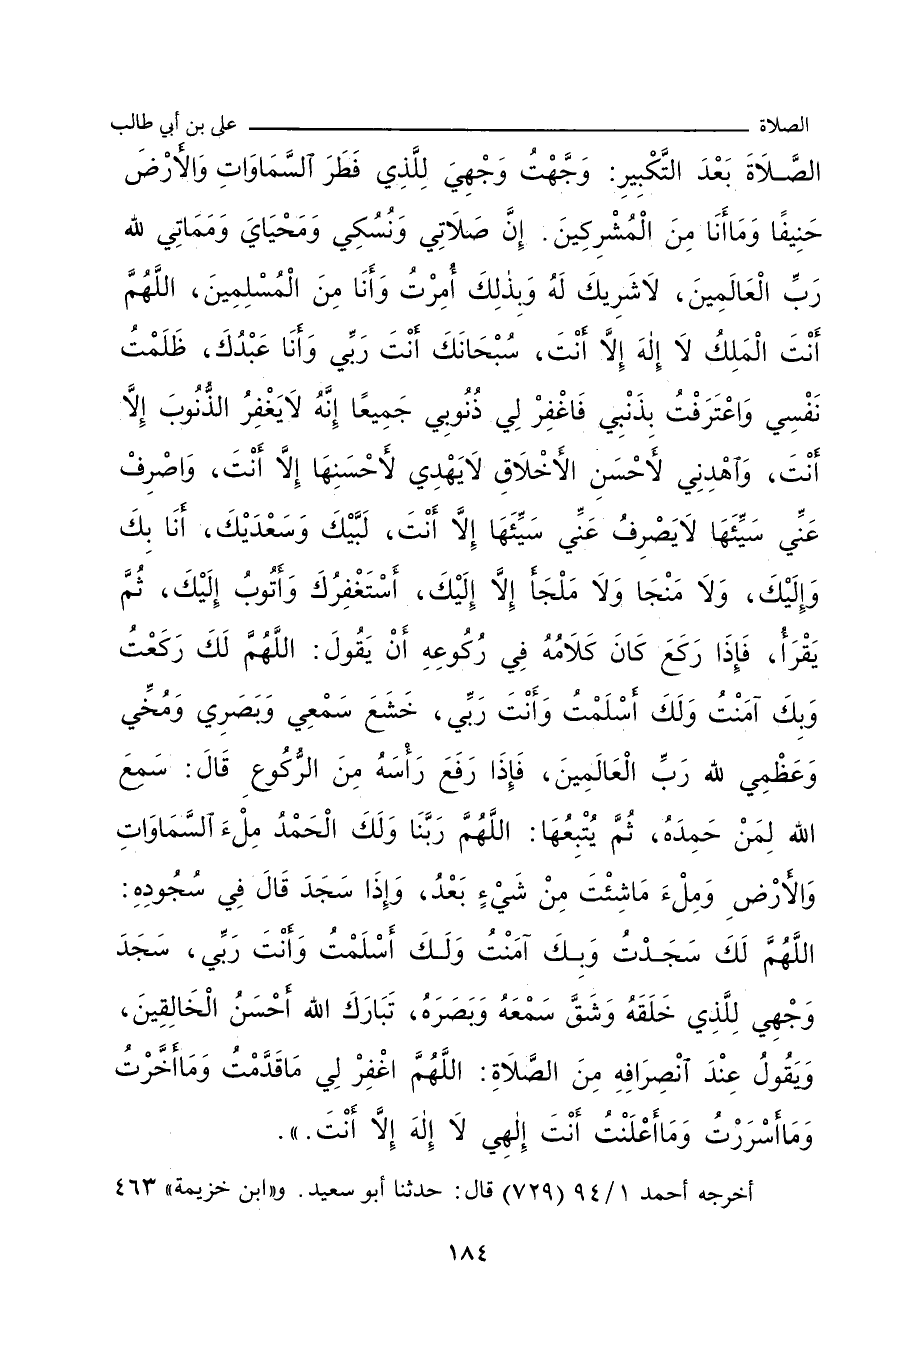 الصلاة ــــــــــــــــــــــــــــــــ علي بن أبي طالب
الصَّـلَاةَ بَعْدَ التَّكْبِيرِ: وَجَّهْتُ وَجْهِيَ لِلَّذِي فَطَرَ ٱلسَّمَاوَاتِ وَالْأَرْضَ
حَنِيفًا وَمَاأَنَا مِنَ الْمُشْرِكِينَ. إِنَّ صَلَاتِي وَنُسُكِي وَمَحْيَايَ وَمَمَاتِي لله
رَبِّ الْعَالَمِينَ، لَاشَرِيكَ لَهُ وَبِذٰلِكَ أُمِرْتُ وَأَنَا مِنَ الْمُسْلِمِينَ، اللَّهُمَّ
أَنْتَ الْمَلِكُ لَا إِلٰهَ إِلَّا أَنْتَ، سُبْحَانَكَ أَنْتَ رَبِّي وَأَنَا عَبْدُكَ، ظَلَمْتُ
نَفْسِي وَاعْتَرَفْتُ بِذَنْبِي فَاغْفِرْ لِي ذُنُوبِي جَمِيعًا إِنَّهُ لَايَغْفِرُ الذُّنُوبَ إِلَّا
أَنْتَ، وَٱهْدِنِي لأَحْسَنِ الأَخْلَاقِ لَايَهْدِي لأَحْسَنِهَا إِلَّا أَنْتَ، وَاصْرِفْ
عَنِّي سَيِّئَهَا لَايَصْرِفُ عَنِّي سَيِّئَهَا إِلَّا أَنْتَ، لَبَّيْكَ وَسَعْدَيْكَ، أَنَا بِكَ
وَإِلَيْكَ، وَلَا مَنْجَا وَلَا مَلْجَأَ إِلَّا إِلَيْكَ، أَسْتَغْفِرُكَ وَأَتُوبُ إِلَيْكَ، ثُمَّ
يَقْرَأُ، فَإِذَا رَكَعَ كَانَ كَلَامُهُ فِي رُكُوعِهِ أَنْ يَقُولَ: اللَّهُمَّ لَكَ رَكَعْتُ
وَبِكَ آمَنْتُ وَلَكَ أَسْلَمْتُ وَأَنْتَ رَبِّي، خَشَعَ سَمْعِي وَبَصَرِي وَمُخِّي
وَعَظْمِي لله رَبِّ الْعَالَمِينَ، فَإِذَا رَفَعَ رَأْسَهُ مِنَ الرُّكُوعِ قَالَ: سَمِعَ
الله لِمَنْ حَمِدَهُ، ثُمَّ يُتْبِعُهَا: اللَّهُمَّ رَبَّنَا وَلَكَ الْحَمْدُ مِلْءَ ٱلسَّمَاوَاتِ
وَالأَرْضِ وَمِلْءَ مَاشِئْتَ مِنْ شَيْءٍ بَعْدُ، وَإِذَا سَجَدَ قَالَ فِي سُجُودِهِ:
اللَّهُمَّ لَكَ سَجَـدْتُ وَبِـكَ آمَنْتُ وَلَـكَ أَسْلَمْتُ وَأَنْتَ رَبِّي، سَجَدَ
وَجْهِي لِلَّذِي خَلَقَهُ وَشَقَّ سَمْعَهُ وَبَصَرَهُ، تَبَارَكَ الله أَحْسَنُ الْخَالِقِينَ،
وَيَقُولُ عِنْدَ ٱنْصِرَافِهِ مِنَ الصَّلَاةِ: اللَّهُمَّ اغْفِرْ لِي مَاقَدَّمْتُ وَمَاأَخَّرْتُ
وَمَاأَسْرَرْتُ وَمَاأَعْلَنْتُ أَنْتَ إِلٰهِي لَا إِلٰهَ إِلَّا أَنْتَ.».
أخرجه أحمد ١/٩٤ (٧٢٩) قال: حدثنا أبو سعيد. و«ابن خزيمة» ٤٦٣
١٨٤